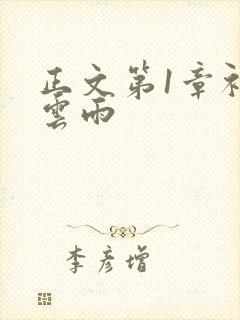 正文第1章
雲雨
李彦增